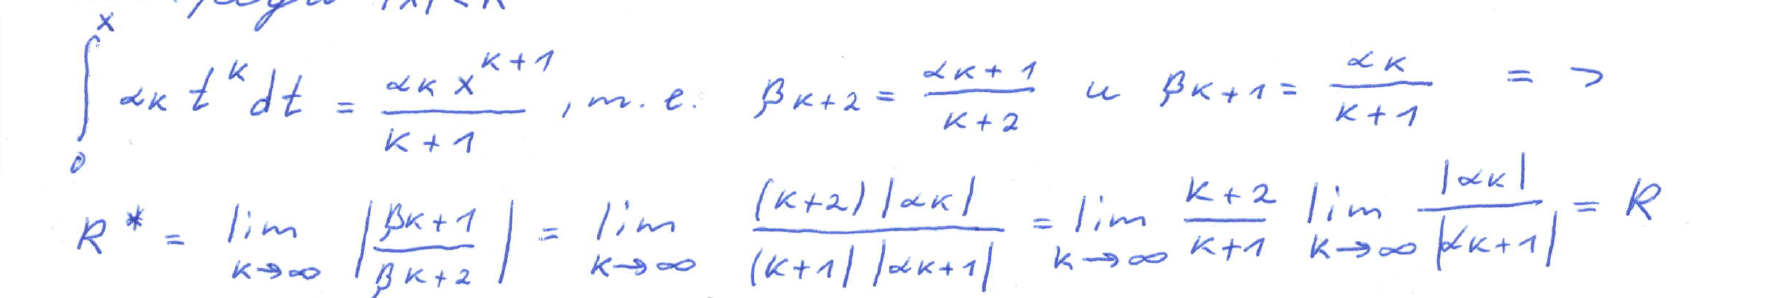 |x| < R
∫₀ˣ αₖ tᵏ dt = αₖ xᵏ⁺¹ / (k+1) , т. е. βₖ₊₂ = αₖ₊₁ / (k+2) и βₖ₊₁ = αₖ / (k+1) =>
R* = lim_{k→∞} |βₖ₊₁ / βₖ₊₂| = lim_{k→∞} (k+2) |αₖ| / (k+1) |αₖ₊₁| = lim_{k→∞} (k+2)/(k+1) lim_{k→∞} |αₖ| / |αₖ₊₁| = R